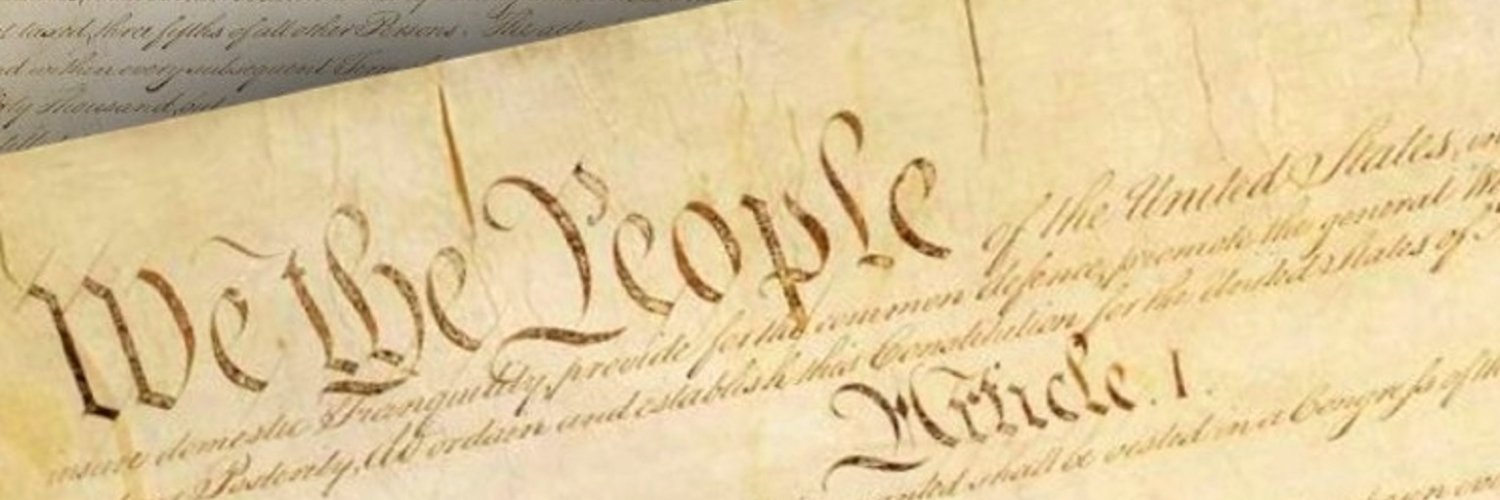 three fifths of all other Persons. The
within every subsequent
Thousand, but
We the People of the United States,
insure domestic Tranquility, provide for the common defence, promote the general
Posterity, do ordain and establish this Constitution for the United States of
Article. I.
shall be vested in a Congress of the